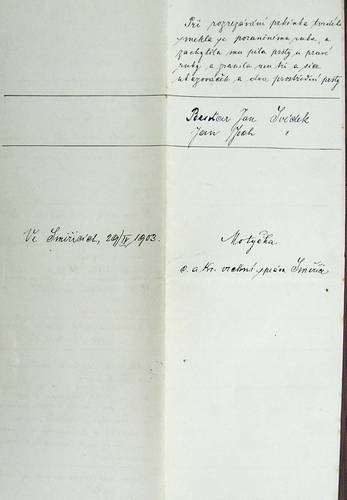 Při rozrezávání prkénka tvrdého
smekla se poraněnému ruka, a
zachytila mu pila prsty u pravé
ruky a zranila mu tři, a sice
ukazováček a dva prostřední prsty
Jan Svědek
Jan "
Ve Smiřicích, 29/IV 1903.
Motyčka
c. a kr. vrchní správa Smiřice